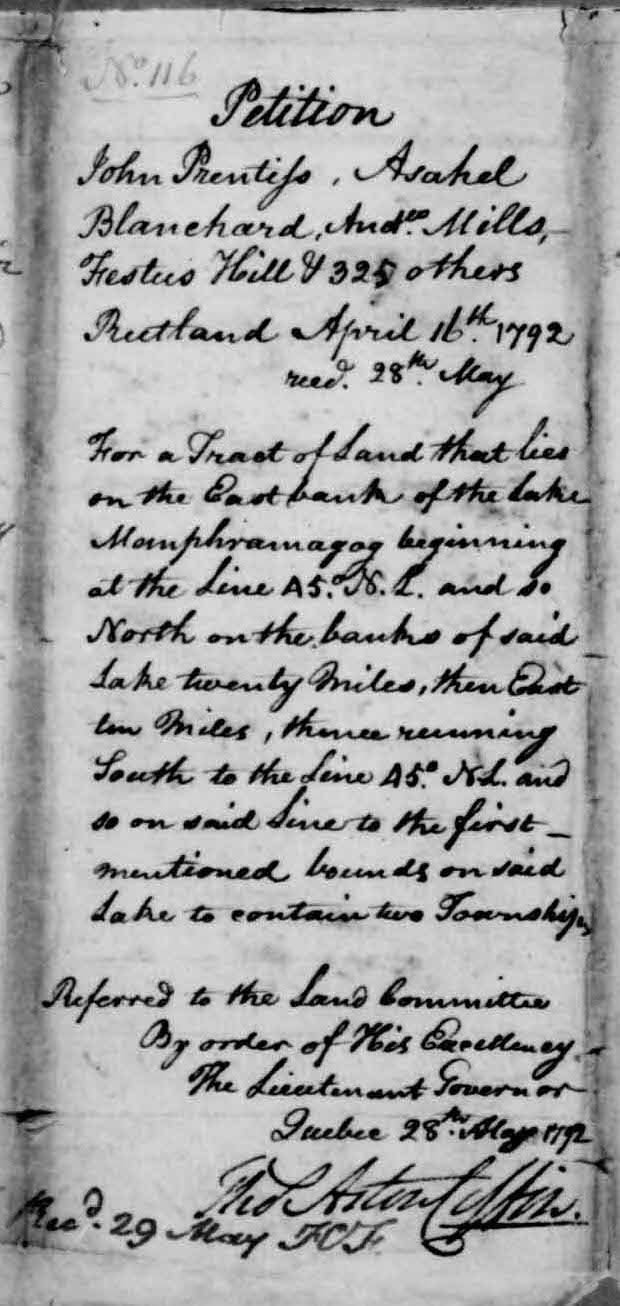 No. 116
Petition
John Prentiss, Asahel
Blanchard, Andw. Mills,
Festus Hill & 325 others
Rutland April 16th. 1792
recd. 28th. May
For a Tract of Land that lies
on the East bank of the Lake
Memphramagog beginning
at the Line 45.° N. L. and so
North on the banks of said
Lake twenty Miles, then East
ten Miles, thence running
South to the Line 45.° N.L. and
so on said Line to the first
mentioned bounds on said
Lake to contain two Townships
Referred to the Land Committee
By order of His Excellency
The Lieutenant Governor
Quebec 28th. May 1792
Tho Aston Coffin.
Recd. 29 May FCF